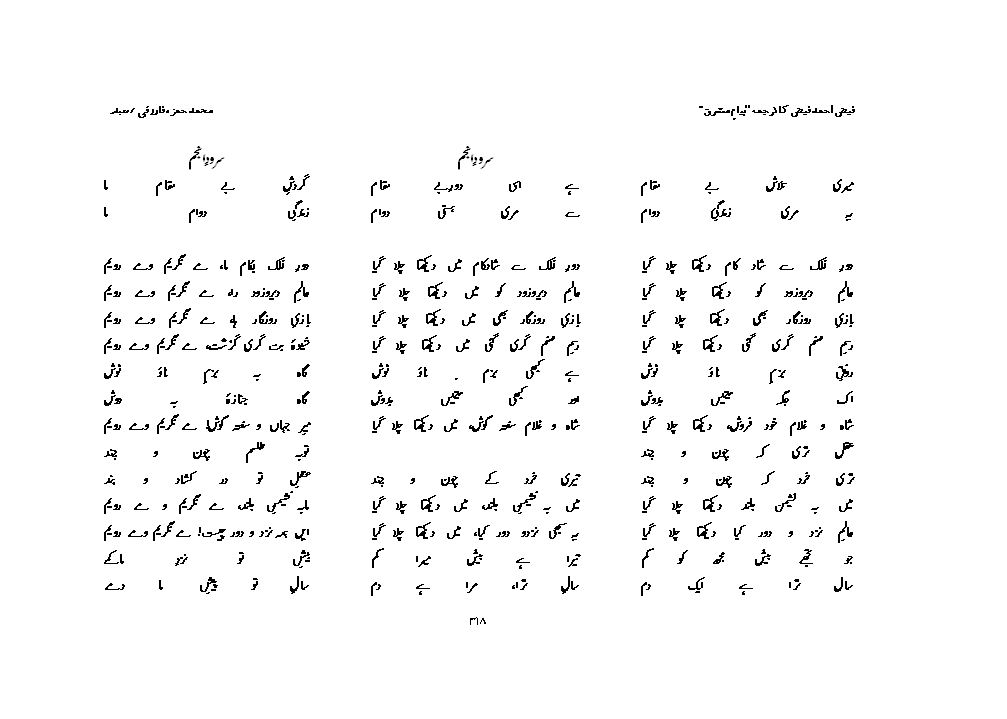 فیض احمد فیض کا ترجمہ "پیامِ مشرق"
محمد حمزہ فاروقی / سید
میری تلاش بے مقام
یہ مری زندگیِ دوام
دورِ فلک سے شاد کام دیکھتا چلا گیا
عالمِ دیروزود کو دیکھتا چلا گیا
بازیِ روزگار بھی دیکھتا چلا گیا
رسمِ صنم گری گئی دیکھتا چلا گیا
رونقِ بزمِ ناؤ نوش
اک جگہ میتیں بدوش
شاہ و غلام خود فروش، دیکھتا چلا گیا
عقل تری کہ چون و چند
تری خرد کہ چون و چند
میں بہ نشیمنِ بلند دیکھتا چلا گیا
عالمِ نزد و دور کیا دیکھتا چلا گیا
جو تجھے بیش مجھ کو کم
سال ترا ہے ایک دم
سرودِ انجم
ہے اسی دوربے مقام
سے مری ہستیِ دوام
دورِ فلک سے شادکام میں دیکھتا چلا گیا
عالمِ دیروزود کو میں دیکھتا چلا گیا
بازیِ روزگار بھی میں دیکھتا چلا گیا
رسمِ صنم گری گئی میں دیکھتا چلا گیا
ہے کبھی بزم ۔ ناؤ نوش
اور کبھی میتیں بدوش
شاہ و غلام سختہ کوش، میں دیکھتا چلا گیا
تیری خرد کے چون و چند
میں بہ نشیمنِ بلند، میں دیکھتا چلا گیا
یہ بھی نزدو دور کیا، میں دیکھتا چلا گیا
تیرا ہے بیش میرا کم
سالِ ترا، مرا ہے دم
سرودِ انجم
گردشِ بے مقام ما
زندگیِ دوام ما
دورِ فلک بکام ما، مے نگریم وے رویم
عالمِ دیروزود را، مے نگریم وے رویم
بازیِ روزگار ہا، مے نگریم وے رویم
شیوۂ بت گری گزشت، مے نگریم وے رویم
گاہ بہ بزم ناؤ نوش
گاہ جنازۂ بہ دوش
میرِ جہاں و سختہ کوش! مے نگریم وے رویم
توبہ طلسم چون و چند
عقلِ تو در کشاد و بند
مابہ نشیمنِ بلند، مے نگریم و مے رویم
ایں ہمہ نزد و دور چیست! مے نگریم وے رویم
بیشِ تو نزدِ ماکمے
سالِ تو پیشِ ما دمے
۳۱۸